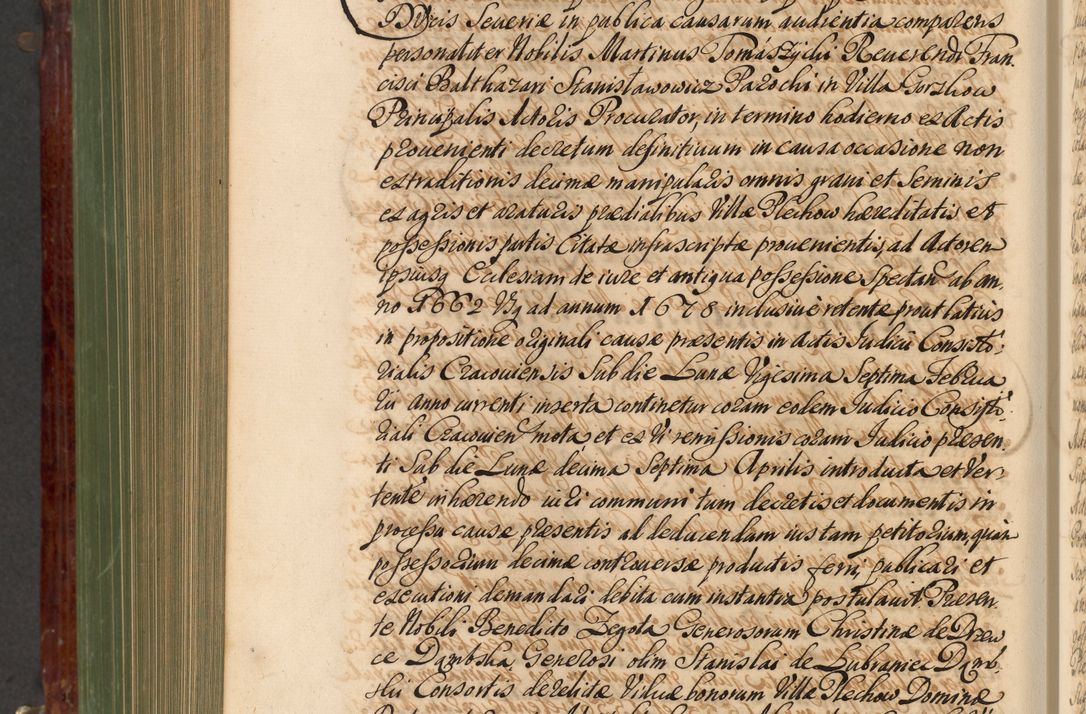 Ducis Severiæ in publica causarum audientia comparens
personaliter Nobilis Martinus Tomaszycki Reuerendi Fran
cisci Balthazari Stanisławowicz Parochi in Villa Gorzkow
Principalis Actoris Procurator, in termino hodierno ex Actis
proueniente decretum definitiuum in causa occasione non
extraditionis decimæ manipularis omnis grani et Seminis
ex agris et araturis prædialibus Villæ Plechow hæreditatis et
possessionis partis Citatæ infrascriptæ prouenientis, ad Actorem
ipsiusq Ecclesiam de iure et antiqua possessione Spectan ab an
no 1662 Vsq ad annum 1678 inclusiue retentæ prout latius
in propositione originali causæ præsentis in Actis Iudicii Consisto:
rialis Cracouiensis Sub die Lunæ Vigesima Septima Februa
rii anno currenti inserta continetur coram eodem Iudicio Consisto:
riali Cracouien mota et ex Vi remissionis coram Iudicio præsen
ti Sub die Lunæ decima Septima Aprilis introducta et Ver
tente inhærendo iuri communi tum decretis et documentis in
processu causæ præsentis ad deducendam iustam petitorium, quam
possessorium decimæ controuersæ productis ferri, publicari et
executioni demandari debita cum instantia postulauit. Præsen
te Nobili Benedicto Zegota Generosorum Christinæ de Drzew
ce Dąmbska, Generosi olim Stanislai de Lubraniec Dąmb
skii Consortis derelictæ Viduæ bonorum Villæ Plechow Dominæ